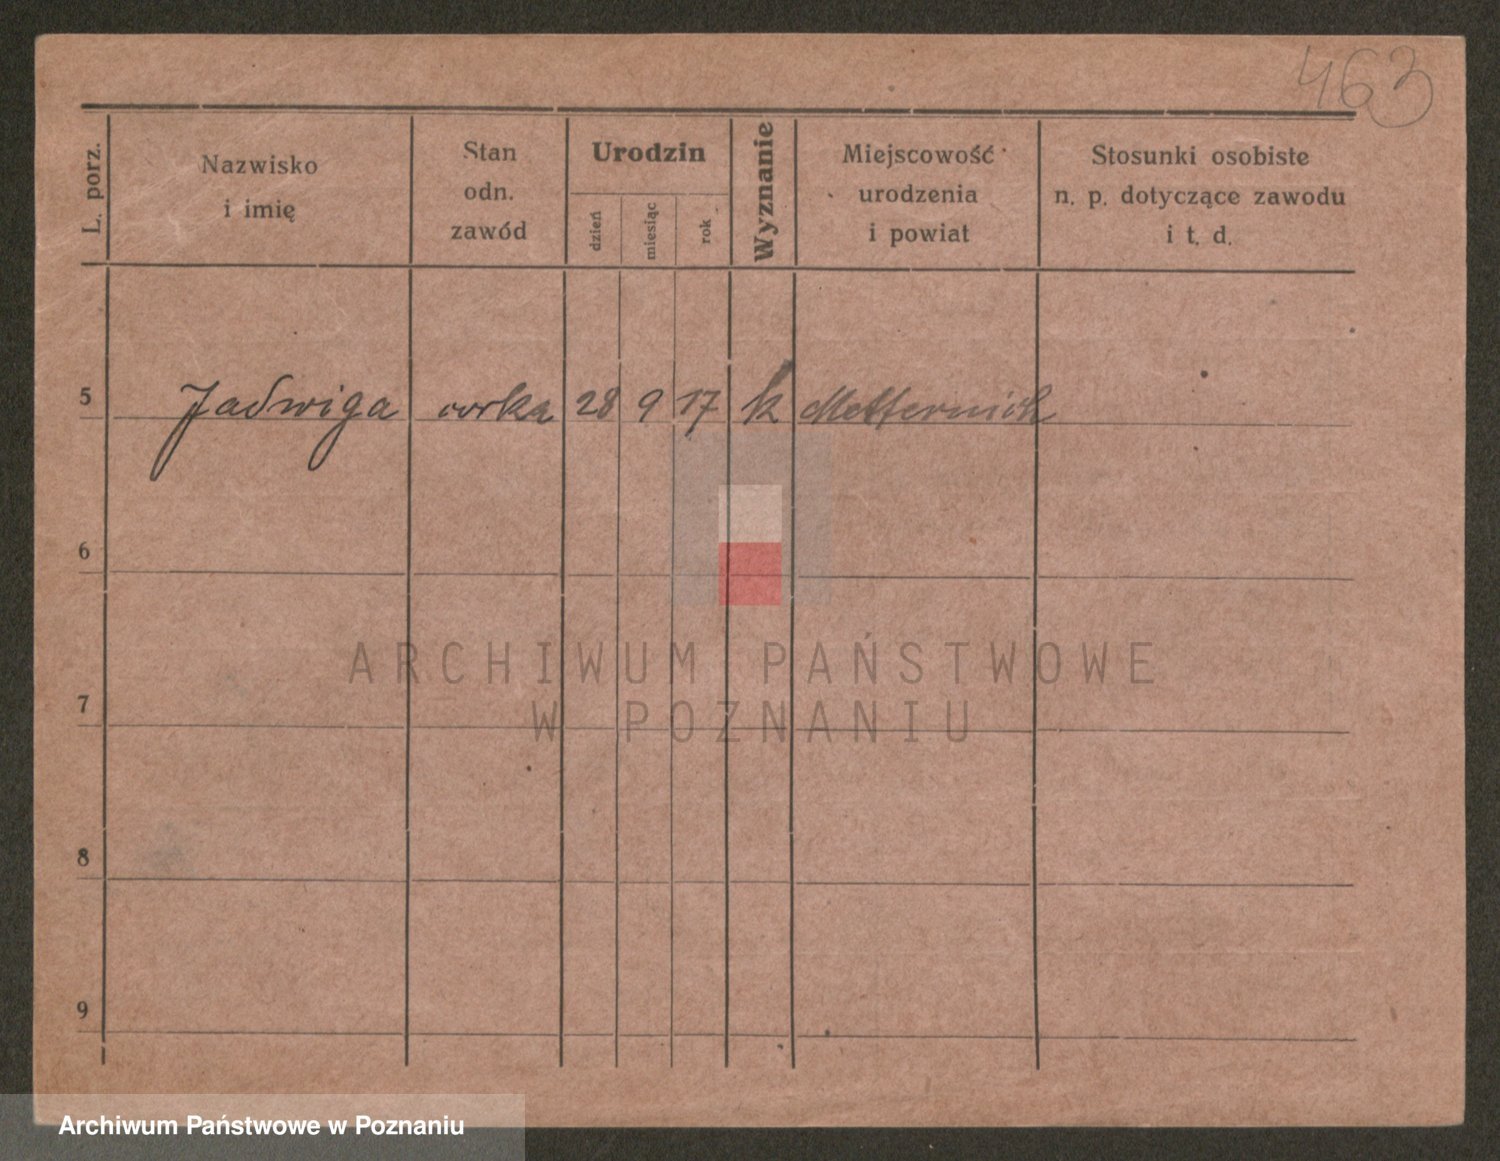 463
L. porz.
Nazwisko
i imię
Stan
odn.
zawód
Urodzin
dzień
miesiąc
rok
Wyznanie
Miejscowość
urodzenia
i powiat
Stosunki osobiste
n. p. dotyczące zawodu
i t. d.
5 Jadwiga corka 28 9 17 k Metternich
6
7
8
9
ARCHIWUM PAŃSTWOWE
W POZNANIU
Archiwum Państwowe w Poznaniu